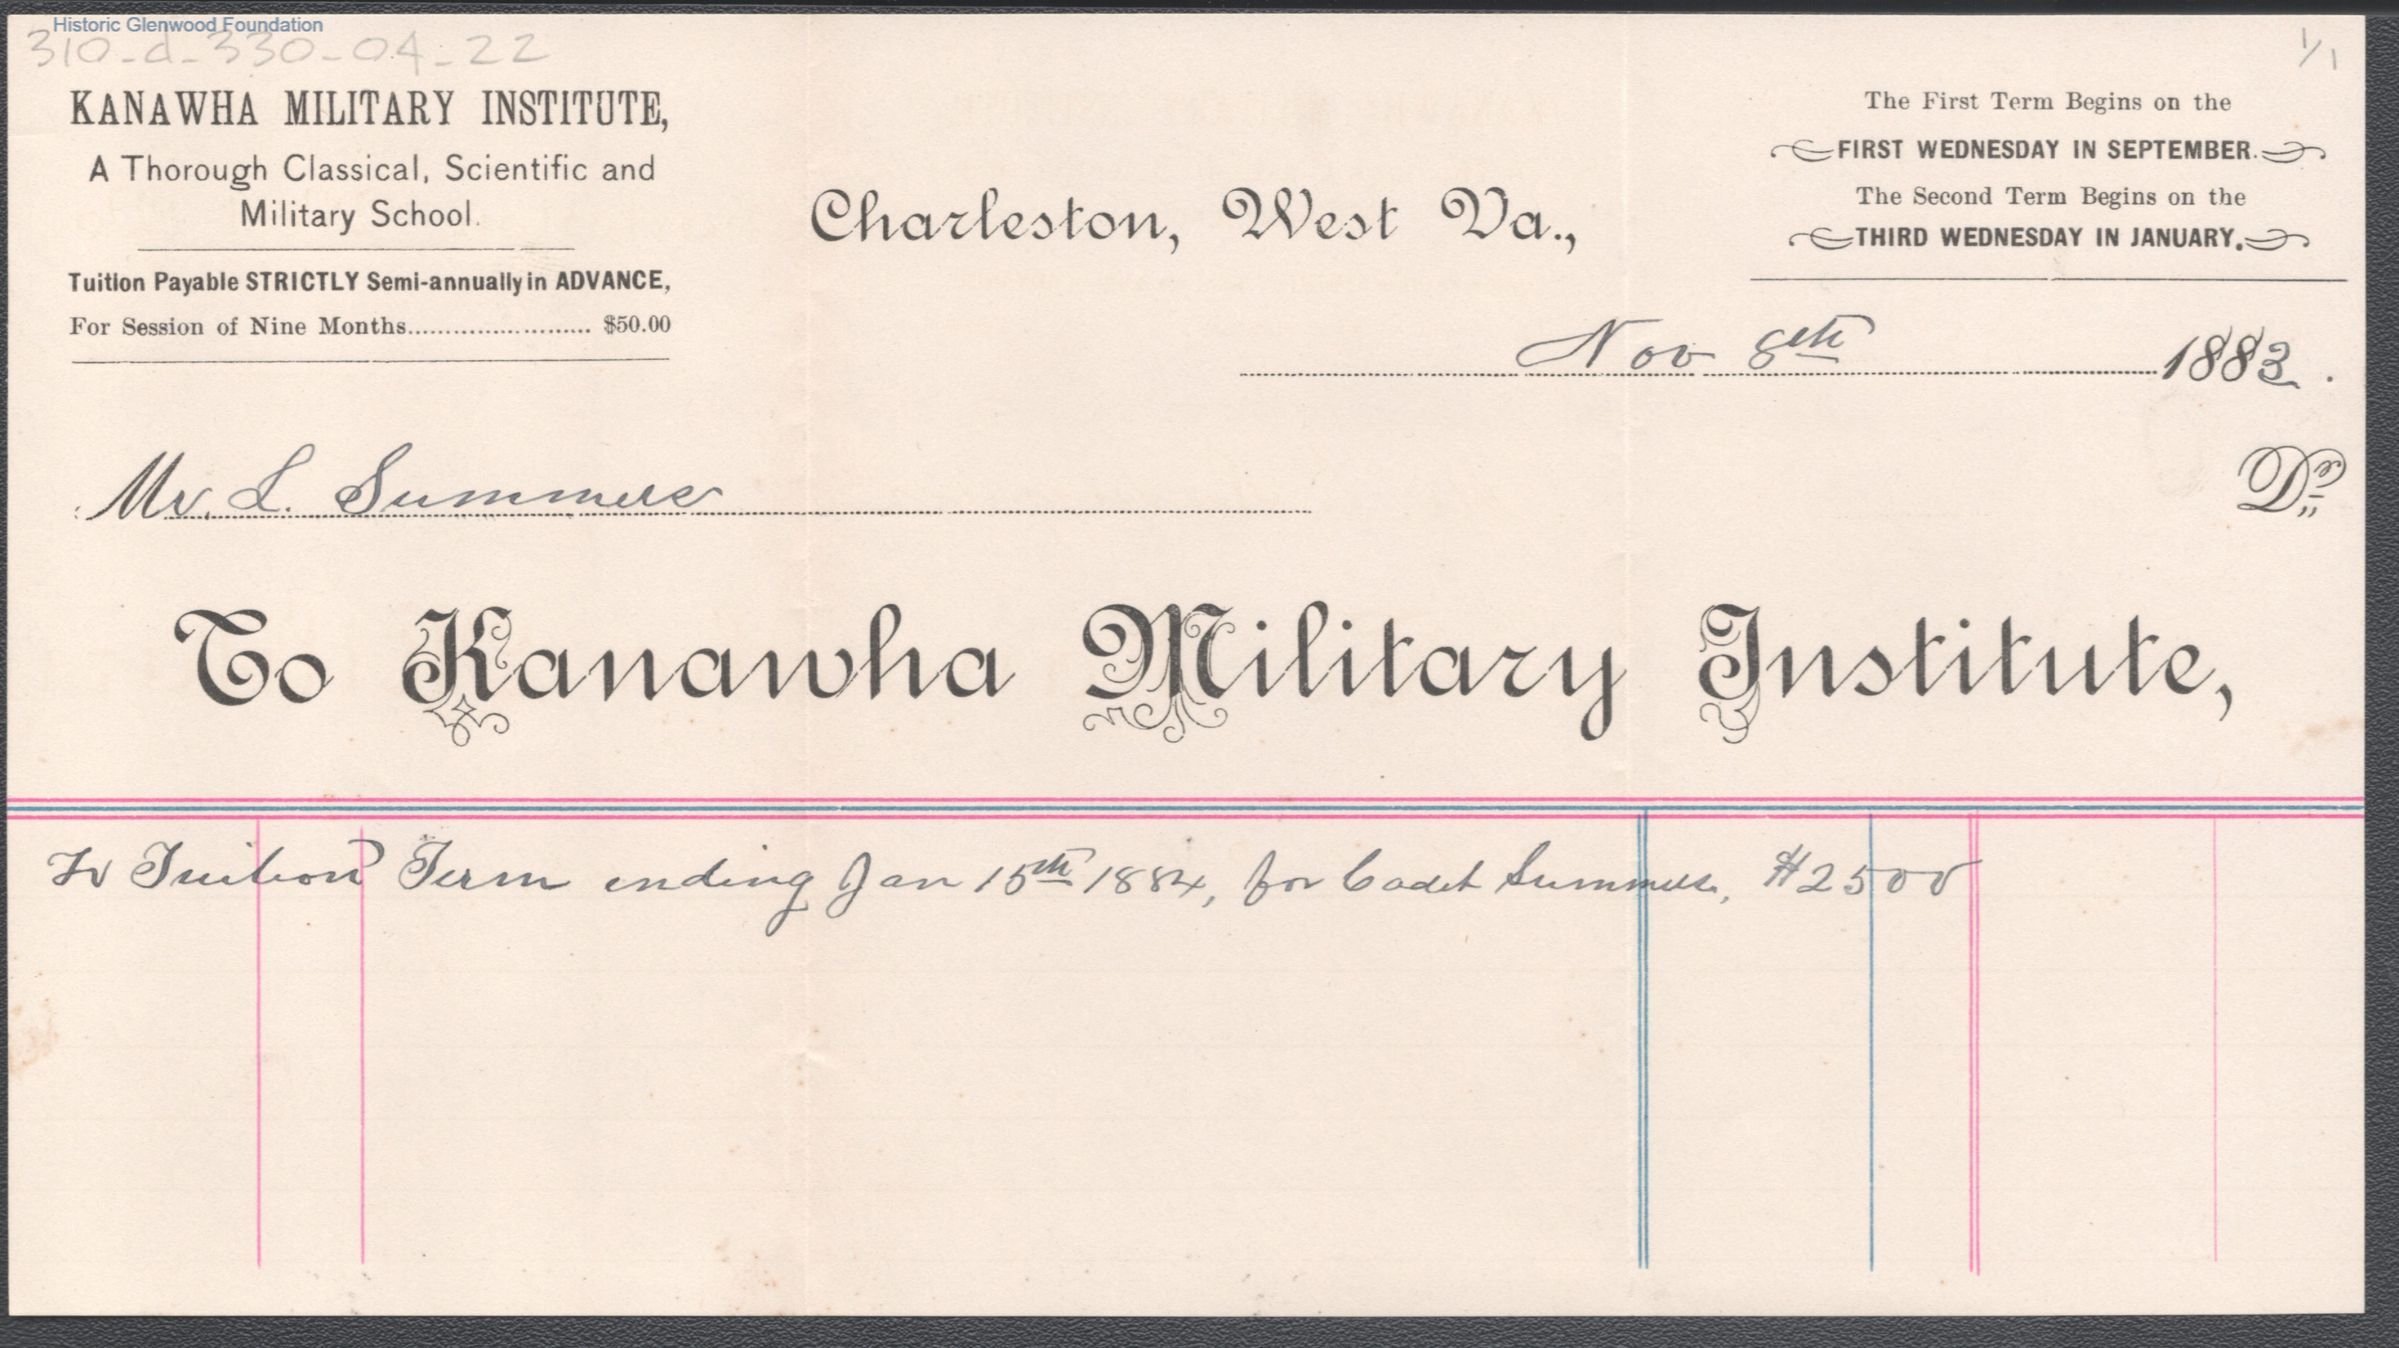 Historic Glenwood Foundation
310-d-330-04-22
1/1
KANAWHA MILITARY INSTITUTE,
A Thorough Classical, Scientific and
Military School.
Tuition Payable STRICTLY Semi-annually in ADVANCE,
For Session of Nine Months........................ $50.00
Charleston, West Va.,
The First Term Begins on the
FIRST WEDNESDAY IN SEPTEMBER.
The Second Term Begins on the
THIRD WEDNESDAY IN JANUARY.
Nov 8th 1883.
Mr. L. Summers
Dr.
To Kanawha Military Institute,
To Tuition Term ending Jan 15th 1884, for Cadet Summers, $25 00